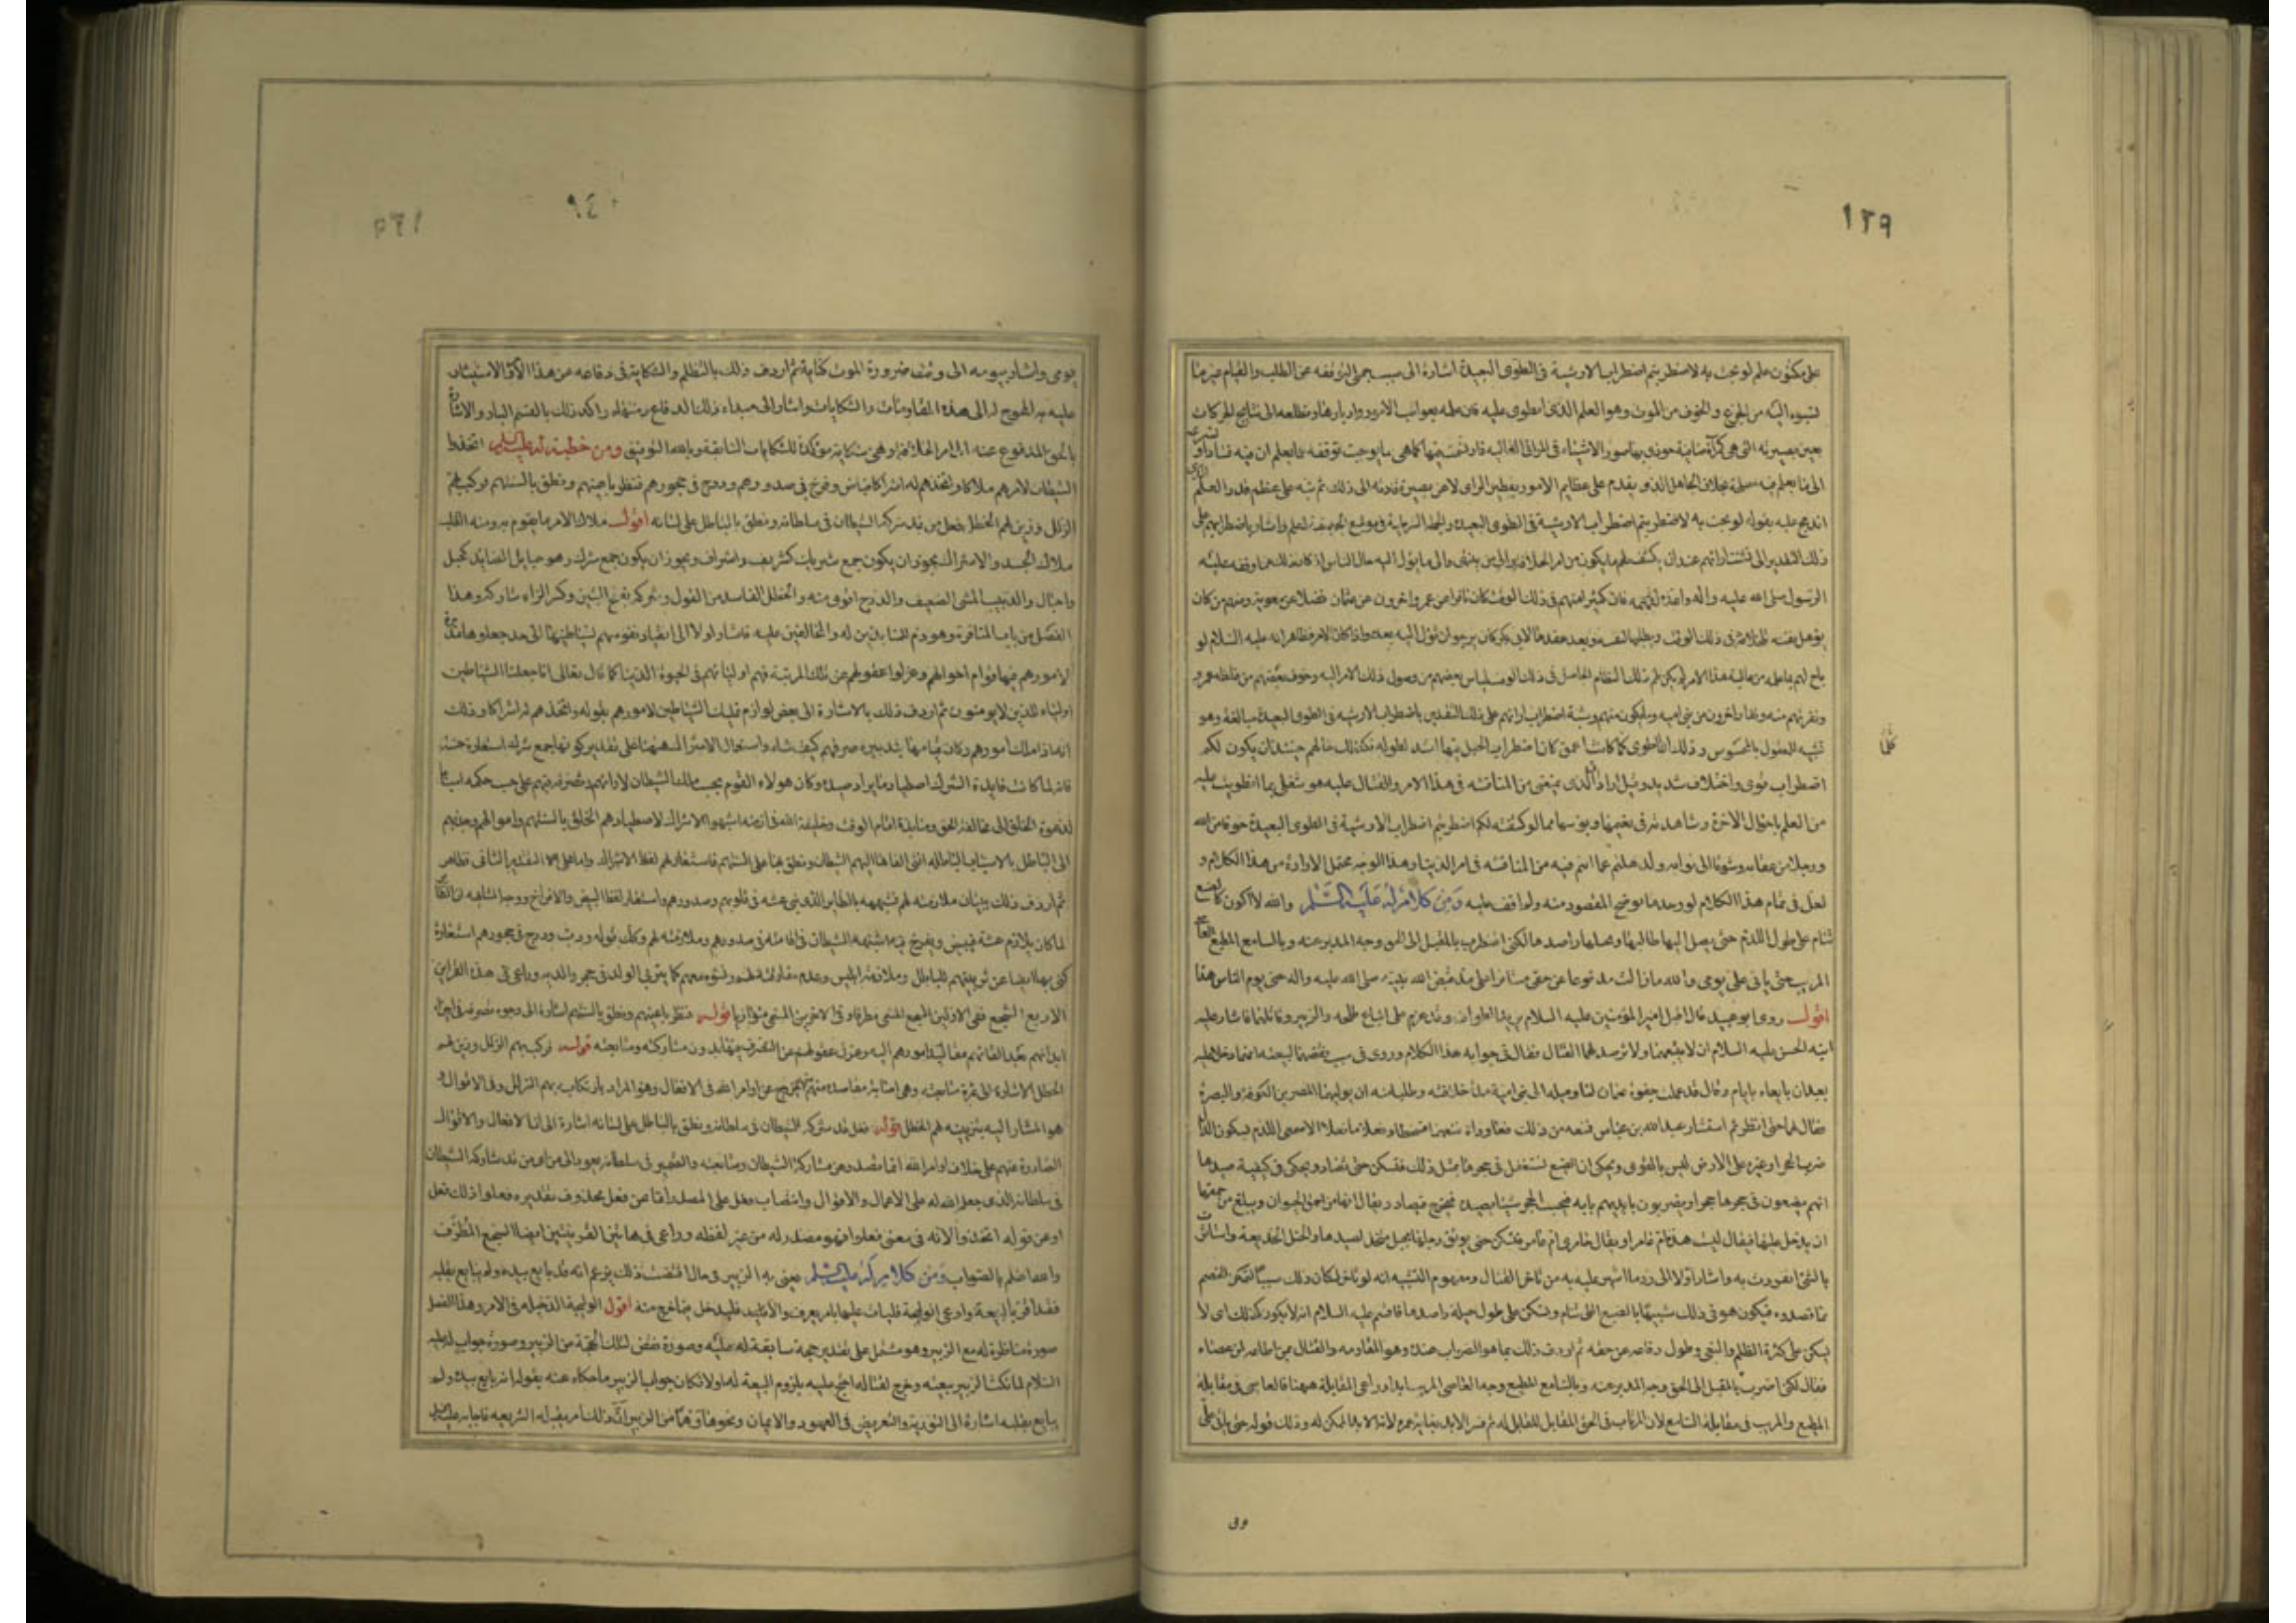 ١٢٩
على مكنون علم لو بحت به لاضطربتم اضطراب الارشية فى الطوى البعيدة اشارة الى سبب جملى لتوقفه عن الطلب والقيام غير ما
نسبوه اليه من الجزع والخوف من الموت وهو العلم الذى انطوى عليه فان علمه بعواقب الامور وادبارها وتطلعه الى نتايج الحركات
بعين بصيرته التى هى كمرآة صافية حوذى بها صور الاشياء فى المراقى العالية فارتسمت فيها كما هى مما يوجب توقفه عما يعلم ان فيه فسادا و
الى ما يعلم فيه مصلحة بخلاف الجاهل الذى يقدم على عظايم الامور بقصير الراى لا عن بصيرة قادته الى ذلك ثم نبه على عظيم قدر العلم
اندمج عليه بقوله لو بحت به لاضطربتم اضطراب الارشية فى الطوى البعيدة والجملة الشرطية فى موضع الجر صفة لعلم واشار باضطرابهم على
ذلك التقدير الى تشتت ارائهم عند ان يكشف لهم ما يكون من امر الخلافة والى من ينتهى والى ما يؤل اليه حال الناس اذ كان ذلك مما وقفه عليه
الرسول صلى الله عليه واله واعده لفهمه فان كثيرا منهم فى ذلك الوقت كان نافرا عن عمر واخرون عن عثمان فضلا عن معوية ومنهم من كان
يؤهل نفسه للخلافة فى ذلك الوقت ويطلبها لنفسه وبعد عقدها لابى بكر كان يرجو ان تؤل اليه بعده واذا كان الامر فظاهر انه عليه السلام لو
باح لهم بما علمه من عاقبة هذا الامر لم يكن لهم ذلك النظام الحاصل فى ذلك الوقت لياس بعضهم من وصول ذلك الامر اليه وخوف بعضهم من غلظة عمر و
ونفرتهم منه ونفار اخرون من بنى امية وما يكون منهم وشبه اضطراب ارائهم على ذلك التقدير باضطراب الارشية فى الطوى البعيدة مبالغة وهو
تشبيه للمعقول بالمحسوس وذلك ان الطوى كلما كانت اعمق كان اضطراب الحبل فيها اشد لطوله فكذلك حالهم حينئذ ان يكون لكم
كلما
اضطراب قوى واختلاف شديد وقيل اراد ان الذى يمنعنى من المنافسة فى هذا الامر والقتال عليه هو شغلى بما انطويت عليه
من العلم باحوال الاخرة وشاهدته من نعيمها وبؤسها مما لو كشفته لكم اضطربتم اضطراب الارشية فى الطوى البعيدة خوفا من الله
ووجلا من عقابه وشوقا الى ثوابه ولذهلتم عما انتم فيه من المنافسة فى امر الدنيا وهذا الوجه محتمل الارادة من هذا الكلام و
لعل فى تمام هذا الكلام لو وجد ما يوضح المقصود منه ولم اقف عليه ومن كلام له عليه السلم والله لا اكون كالضبع
تنام على طول اللدم حتى يصل اليها طالبها ويختلها راصدها لكنى اضرب بالمقبل الى الحق وجه المدبر عنه وبالسامع المطيع العاصى
المريب حتى ياتى على يومى والله ما زالت مدفوعا عن حقى مستاثرا على منذ قبض الله نبيه صلى الله عليه واله حتى يوم الناس هذا
اقول روى ابو عبيد قال اقبل امير المؤمنين عليه السلام يريد الطواف وقد عزم على اتباع طلحة والزبير وقتالهما فاشار عليه
ابنه الحسن عليه السلام ان لا يتبعهما ولا يرصد لهما القتال فقال فى جوابه هذا الكلام وروى فى سبب نقضهما لبيعته انهما دخلا عليه
بعد ان بايعاه بايام وقال قد علمت جفوة عثمان لنا وميله الى بنى امية مدة خلافته وطلبا منه ان يوليهما المصرين الكوفة والبصرة
فقال لهما حتى انظر ثم استشار عبد الله بن عباس فمنعه من ذلك
ضربها لحجر او غيره على الارض ليس بالقوى ويحكى ان الضبع تستغفل فى جحرها بمثل ذلك فتسكن حتى تصاد ويحكى فى كيفية صيدها
انهم يضعون فى جحرها حجرا ويضربون بايديهم بابه فتحسب الحجر شيئا تصيده فتخرج فتصاد ويقال انها من احمق الحيوان ويبلغ من حمقها
ان يدخل عليها فيقال ليست هذه ام عامر او يقال خامرى ام عامر فتسكن حتى يوثق رجلها بحبل معد لصيدها والختل الخديعة واستاثرت
بالشئ انفردت به واشار اولا الى رد ما اشير عليه به من تاخر القتال ومفهوم التشبيه انه لو تاخر لكان ذلك سببا لتمكن الخصم
مما قصدوه فيكون هو فى ذلك شبيها بالضبع التى تنام وتسكن على طول حيلة راصدها فاقسم عليه السلام انه لا يكون كذلك اى لا
يسكن على كثرة الظلم والبغى وطول دفاعه عن حقه ثم اردف ذلك بما هو الصواب عنده وهو المقاومة والقتال بمن اطاعه لمن عصاه
فقال لكنى اضرب بالمقبل الى الحق وجه المدبر عنه وبالسامع المطيع وجه العاصى المريب ابدا وراعى المقابلة ههنا فالعاصى فى مقابلة
المطيع والمريب فى مقابلة السامع لان المرتاب فى الحق المقابل للقابل له ثم فسر الابد بغاية عمره لانه الابد الممكن له وذلك قوله حتى ياتى على
وى
٩٤٠
يومى واشار بيومه الى وقت ضرورة الموت كناية ثم اردف ذلك بالتظلم والشكاية فى دفاعه من هذا الامر والاستيثار
عليه به المحوج له الى هذه المقاومات والشكايات واشار الى مبداء ذلك الدفاع ومنتهاه واكد ذلك بالقسم البار والاشارة
بالحق المدفوع عنه الى امر الخلافة وهى شكاية مؤكدة للشكايات السابقة وبالله التوفيق ومن خطبة له عليه السلم اتخذوا
الشيطان لامرهم ملاكا واتخذهم له اشراكا فباض وفرخ فى صدورهم ودرج فى حجورهم فنظر باعينهم ونطق بالسنتهم فركب بهم
الزلل وزين لهم الخطل فعل من قد شركه الشيطان فى سلطانه ونطق بالباطل على لسانه اقول ملاك الامر ما يقوم به ومنه القلب
ملاك الجسد والاشراك يجوز ان يكون جمع شريك كشريف واشراف ويجوز ان يكون جمع شرك وهو حبايل الصايد كحبل
واحبال والدبيب المشى الضعيف والدرج اقوى منه والخطل الفاسد من القول وشركه بفتح الشين وكسر الراء شاركه وهذا
الفصل من باب المنافرة وهو ذم للمنابذين له والمخالفين عليه فاشار اولا الى انقياد نفوسهم لشياطينها الى حد جعلوها مدبرة
لامورهم وبها قوام احوالهم وعزلوا عقولهم عن تلك المرتبة فهم اوليائهم فى الحيوة الدنيا كما قال تعالى انا جعلنا الشياطين
اولياء للذين لا يومنون ثم اردف ذلك بالاشارة الى بعض لوازم تمليك الشياطين لامورهم بقوله واتخذهم له اشراكا وذلك
انه اذا ملك امورهم وكان قيامها بتدبيره صرفهم كيف شاء واستعمال الاشراك ههنا على تقدير كونها جمع شرك استعارة حسنة
فانه لما كانت فايدة الشرك اصطياد ما يراد صيده وكان هولاء القوم بحسب ملك الشيطان لارائهم وتصرفه فيهم على حسب حكمه اسبابا
لدعوة الخلق الى مخالفة الحق ومنابذة امام الوقت وخليفة الله فى ارضه اشبهوا الاشراك لاصطيادهم الخلق بالسنتهم واموالهم وجذبهم
الى الباطل بالاسباب الباطلة التى القاها اليهم الشيطان ونطق بها على السنتهم فاستعار لهم لفظ الاشراك واما على التقدير الثانى فظاهر
ثم اردف ذلك ببيان ملازمته لهم فشبهه بالطاير الذى بنى عشه فى قلوبهم وصدورهم واستعار لفظ البيض والافراخ ووجه المشابهة ان الطاير
لما كان يلازم عشه فيبيض ويفرخ فيه اشبهه الشيطان فى اقامته فى صدورهم وملازمته لهم وكذلك قوله ودب ودرج فى حجورهم استعارة
كنى بها ايضا عن تربيتهم للباطل وملازمة ابليس وعدم مفارقته لهم ونشوه معهم كما يتربى الولد فى حجر والديه وراعى فى هذه القراين
الاربع السجع ففى الاولين السجع المسمى مطرفا وفى الاخرين المسمى متوازيا قوله فنظر باعينهم ونطق بالسنتهم اشارة الى وجوه تصرفه فى اجزاء
ابدانهم بعد القائهم مقاليد امورهم اليه وعزل عقولهم عن التصرف فيها بدون مشاركته ومتابعته قوله فركب بهم الزلل وزين لهم
الخطل الاشارة الى ثمرة متابعته وهى اصابة مقاصده منهم من الخروج عن اوامر الله فى الافعال وهو المراد بارتكابه بهم الزلل وفى الاقوال و
هو المشار اليه بتزيينه لهم الخطل قوله فعل قد شركه الشيطان فى سلطانه ونطق بالباطل على لسانه اشارة الى ان الافعال والاقوال
الصادرة عنهم على خلاف اوامر الله انما تصدر عن مشاركة الشيطان ومتابعته والضمير فى سلطانه يعود الى من اى من قد شاركه الشيطان
فى سلطانه الذى جعل الله له على الاعمال والاقوال وانتصاب فعل على المصدر اما عن فعل محذوف تقديره فعلوا ذلك فعل
او عن قوله اتخذوا لانه فى معنى فعلوا فهو مصدر له من غير لفظه وراعى فى هاتين القرينتين ايضا السجع المطرف
والله اعلم بالصواب ومن كلام له عليه السلم يعنى به الزبير فى حال اقتضت ذلك يزعم انه قد بايع بيده ولم يبايع بقلبه
فقد اقر بالبيعة وادعى الوليجة فليات عليها بامر يعرف والا فليدخل فيما خرج منه اقول الوليجة الدخيلة فى الامر وهذا الفصل
صورة مناظرة له مع الزبير وهو مشتمل على تقدير حجة سابقة له عليه وصورة نقض لتلك الحجة من الزبير وصورة جواب له عليه
السلام لما نكث الزبير بيعته وخرج لقتاله احتج عليه بلزوم البيعة له اولا فكان جواب الزبير ما حكاه عنه بقوله انه بايع بيده ولم
يبايع بقلبه اشارة الى التورية والتعريض فى العهود والايمان ونحوها